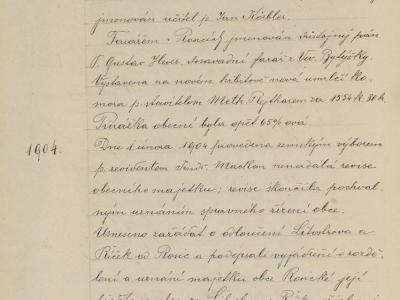 jmenován učitel p. Jan Köibler.
Farářem v Roncích jmenován důstojný pán
P. Gustav Heuer, dosavadní farář z Vev. Bytýšky.
Vystavena na novém hřbitově nová umrlčí ko-
mora p. stavitelem Meth. Rejtharem za 1554 k. 80 h.
Přirážka obecní byla opět 65% ová.
1904.
Dne 1 února 1904 provedena zemským výborem
p. revidentem Jindř. Macklon nenadálá revise
obecního majetku; revise skončila pochval-
ným uznáním spravného řízení obce.
Usneseno zažádat o odloučení Litostrova a
Říček od Ronc a podepsati vyjádření o rozdě-
lení a uznání majetku obce Roncké její